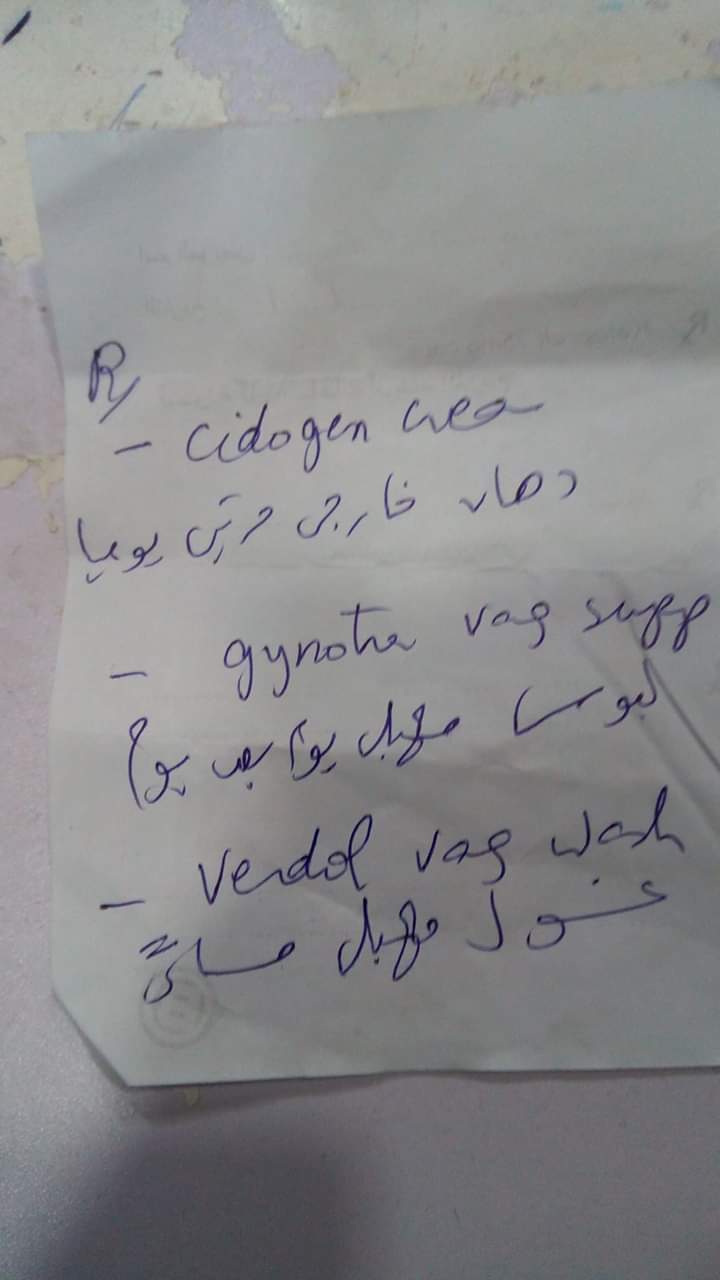 R/
- Cidogen cream
دهان خارجى مرتين يوميا
- gynotra vag supp
لبوس مهبل يوم بعد يوم
- Verdol vag wash
غسول مهبل مساءً